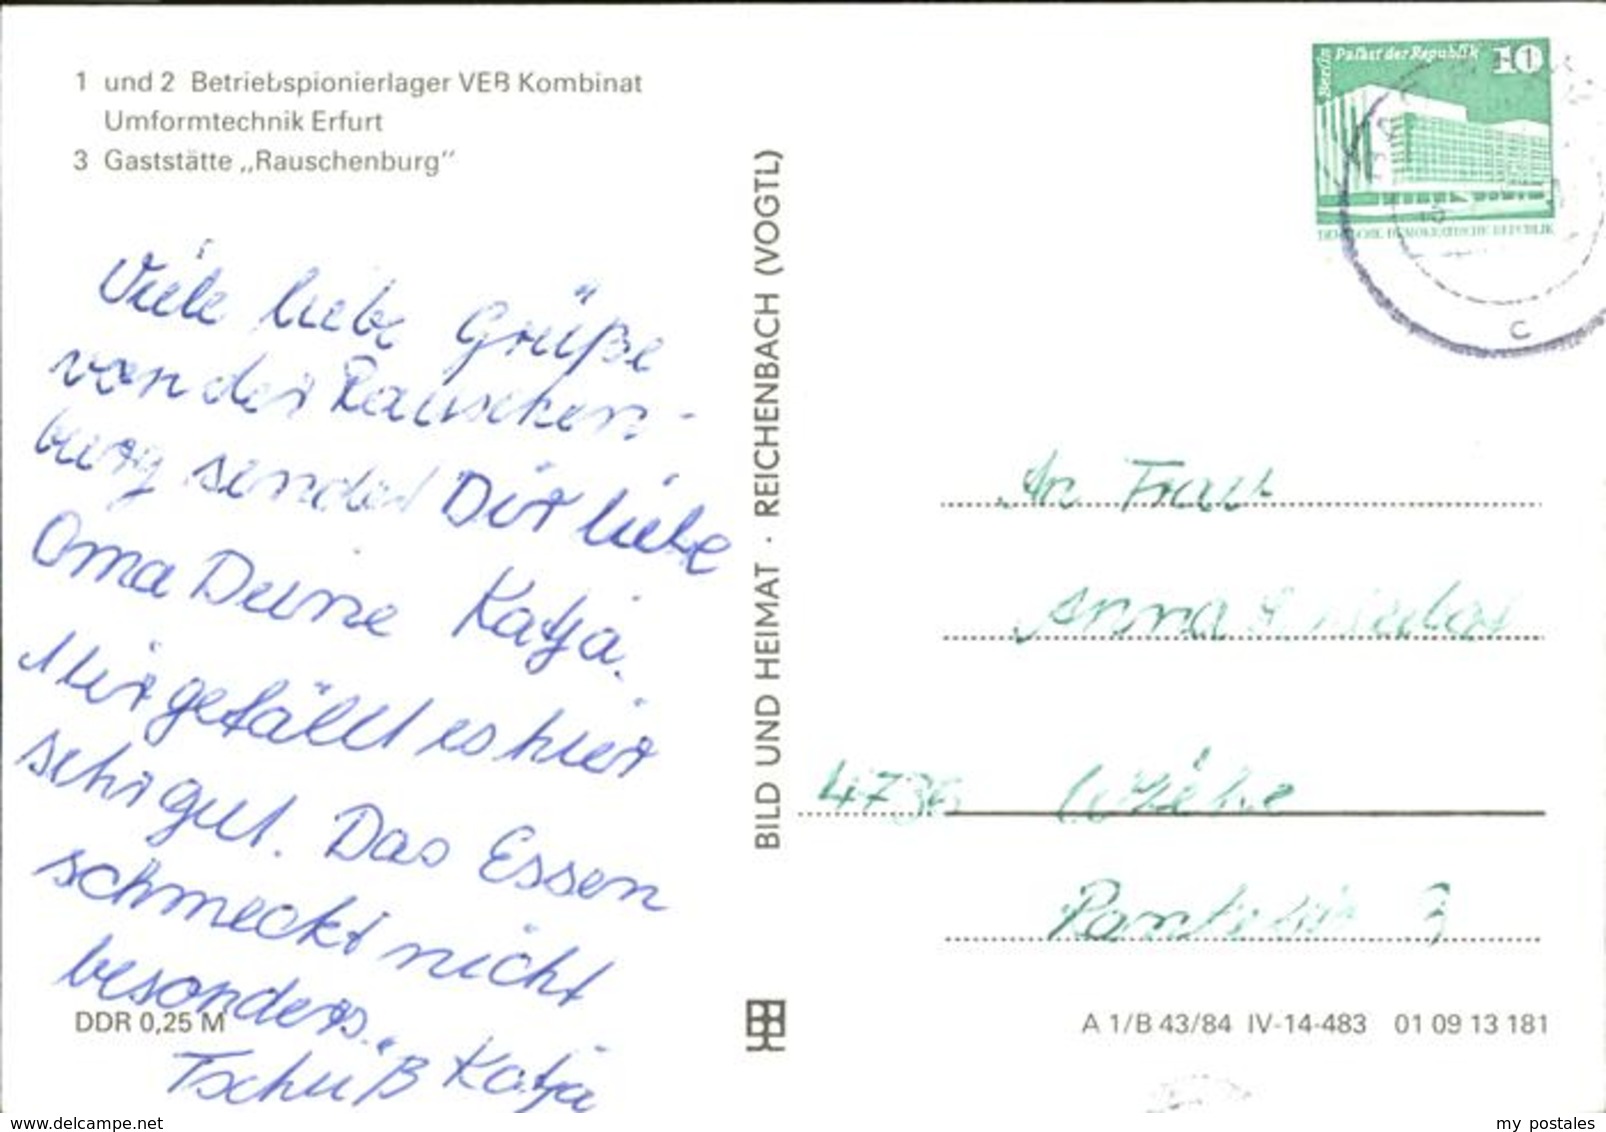 1 und 2 Betriebspionierlager VEB Kombinat
Umformtechnik Erfurt
3 Gaststätte „Rauschenburg"
Viele liebe Grüße
von der Rauschen-
burg sendet Dir liebe
Oma Deine Katja.
Mir gefällt es hier
sehr gut. Das Essen
schmeckt nicht
besonders.
Tschüß Katja
DDR 0,25 M
BILD UND HEIMAT · REICHENBACH (VOGTL)
Berlin Palast der Republik 10
DEUTSCHE DEMOKRATISCHE REPUBLIK
C
An Frau
Anna
4736 Wiehe
3
A 1/B 43/84 IV-14-483 01 09 13 181
www.delcampe.net
my postales